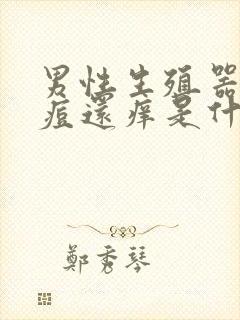 男性生殖器
痘還痒是什
鄭秀琴